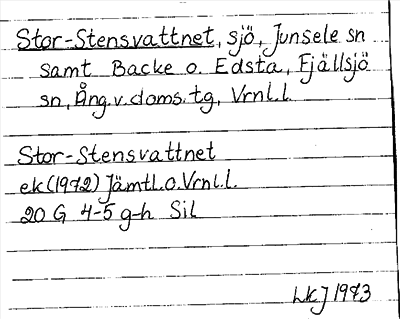 Stor-Stensvattnet, sjö, Junsele sn
samt Backe o. Edsta, Fjällsjö
sn, Ång.v.doms.tg, Vrnl.l.
Stor-Stensvattnet
ek(1972) Jämtl.o.Vrnl.l.
20 G 4-5 g-h Sil
LKJ 1973